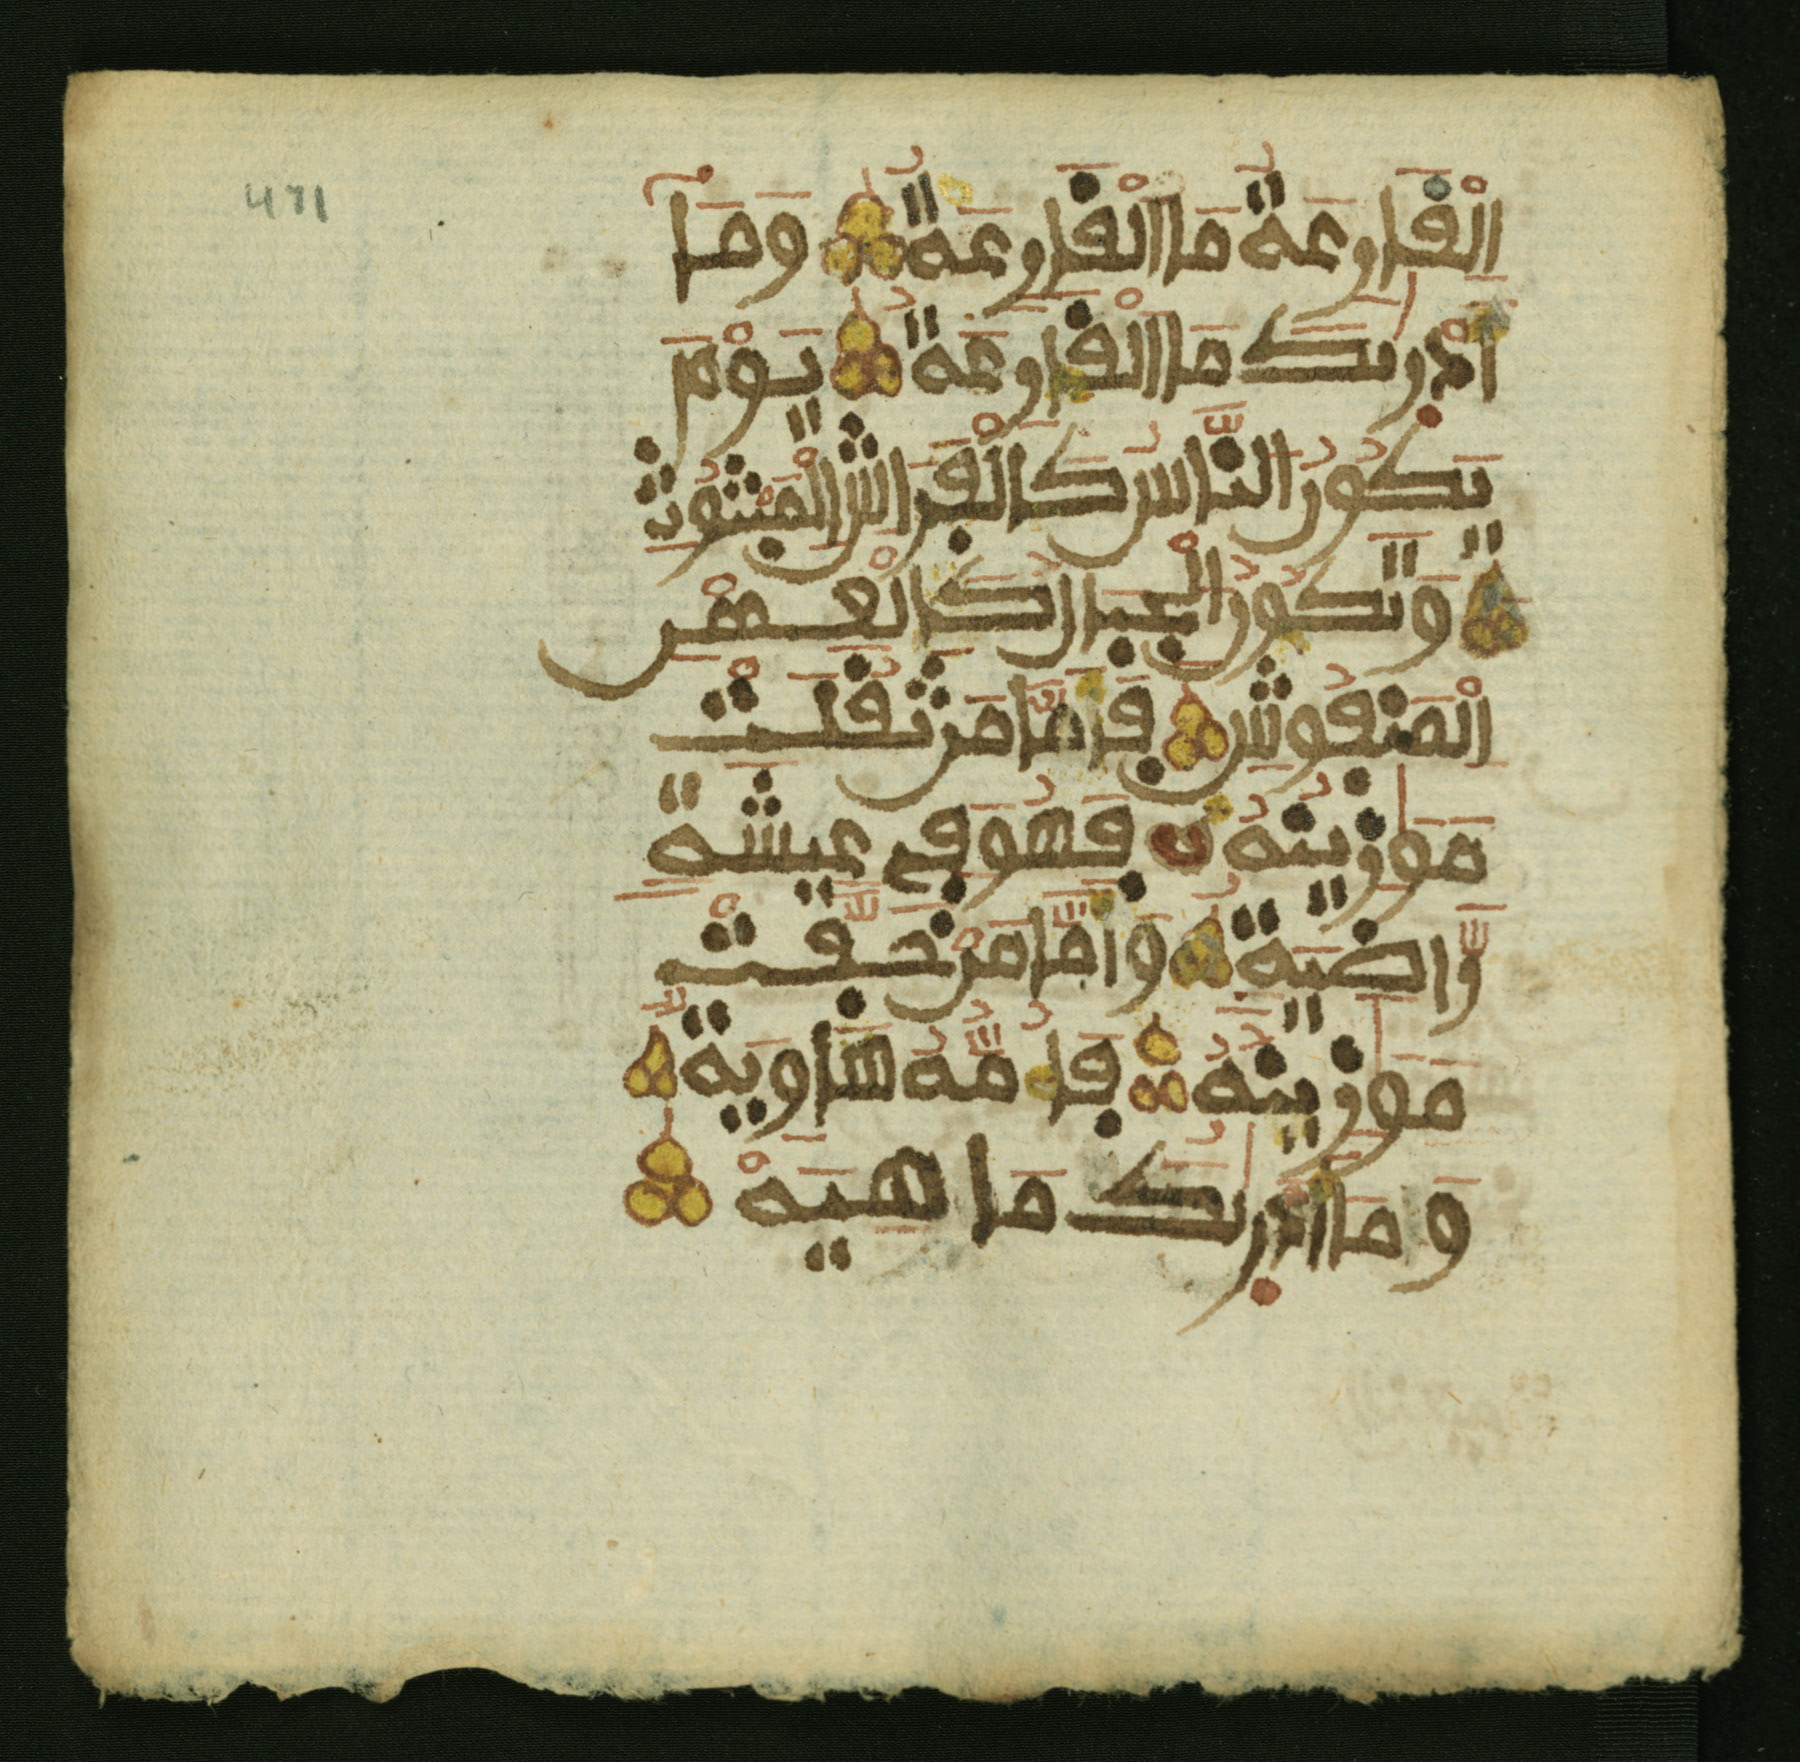 471
الْقَارِعَةُ مَا الْقَارِعَةُ وَمَآ
أَدْرَىٰكَ مَا الْقَارِعَةُ يَوْمَ
يَكُونُ النَّاسُ كَالْفَرَاشِ الْمَبْثُوثِ
وَتَكُونُ الْجِبَالُ كَالْعِهْنِ
الْمَنفُوشِ فَأَمَّا مَن ثَقُلَتْ
مَوَٰزِينُهُ فَهُوَ فِي عِيشَةٍ
رَّاضِيَةٍ وَأَمَّا مَنْ خَفَّتْ
مَوَٰزِينُهُ فَأُمُّهُ هَاوِيَةٌ
وَمَا أَدْرَىٰكَ مَا هِيَهْ